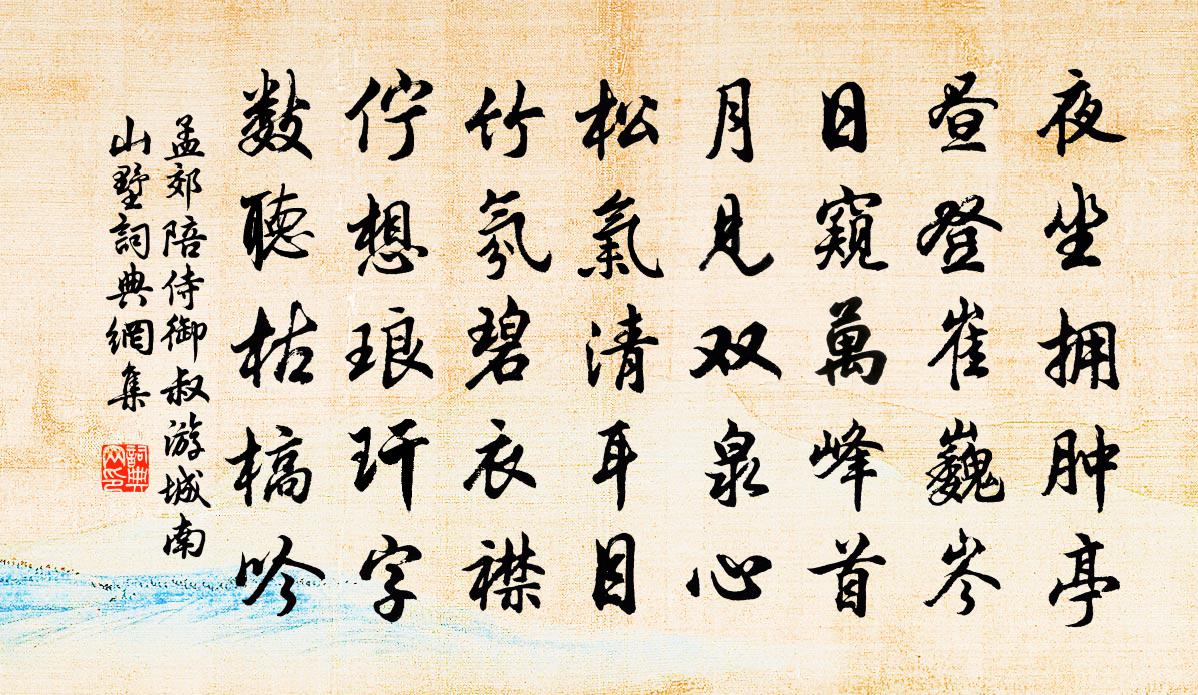 夜坐拥肿亭
昼登崔巍岑
日窺萬峰首
月見双泉心
松氣清耳目
竹氛碧衣襟
佇想琅玕字
數聽枯槁吟
孟郊陪侍御叔游城南
山墅詞典網集
詞典
网印